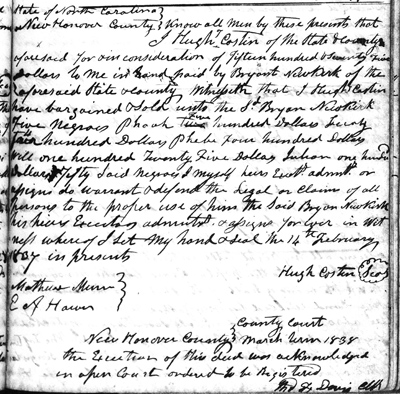 State of North Carolina
New Honover County } Know all Men by these presents that
I Hugh Costin of the State & County
aforesaid for & in consideration of fifteen hundred & Seventy five
Dollars to Me in hand paid by Bryant Newkirk of the
aforesaid State & County Whereith that I Hugh Costin
have bargained & Sold unto the Sd Bryan Newkirk
five Negroes hundred Dollars
hundred Dollars Phebe four hundred Dollars
one hundred Twenty Five Dollars one hundred
Dollars fifty Said Negroes I myself heirs admrs or
assigns do warrant & defend the legal or claims of all
persons to the proper use of him the Said Bryan Newkirk
his heirs & assigns for ever in Wit
ness where of I Set My hand & Seal this 14th February
in presents
Hugh Costin Seal
Mathew
E A
New Honover County } County Court
March Term 1838
the Execution of this deed was acknowledged
in open Court ordered to be Registered
Davis Clk